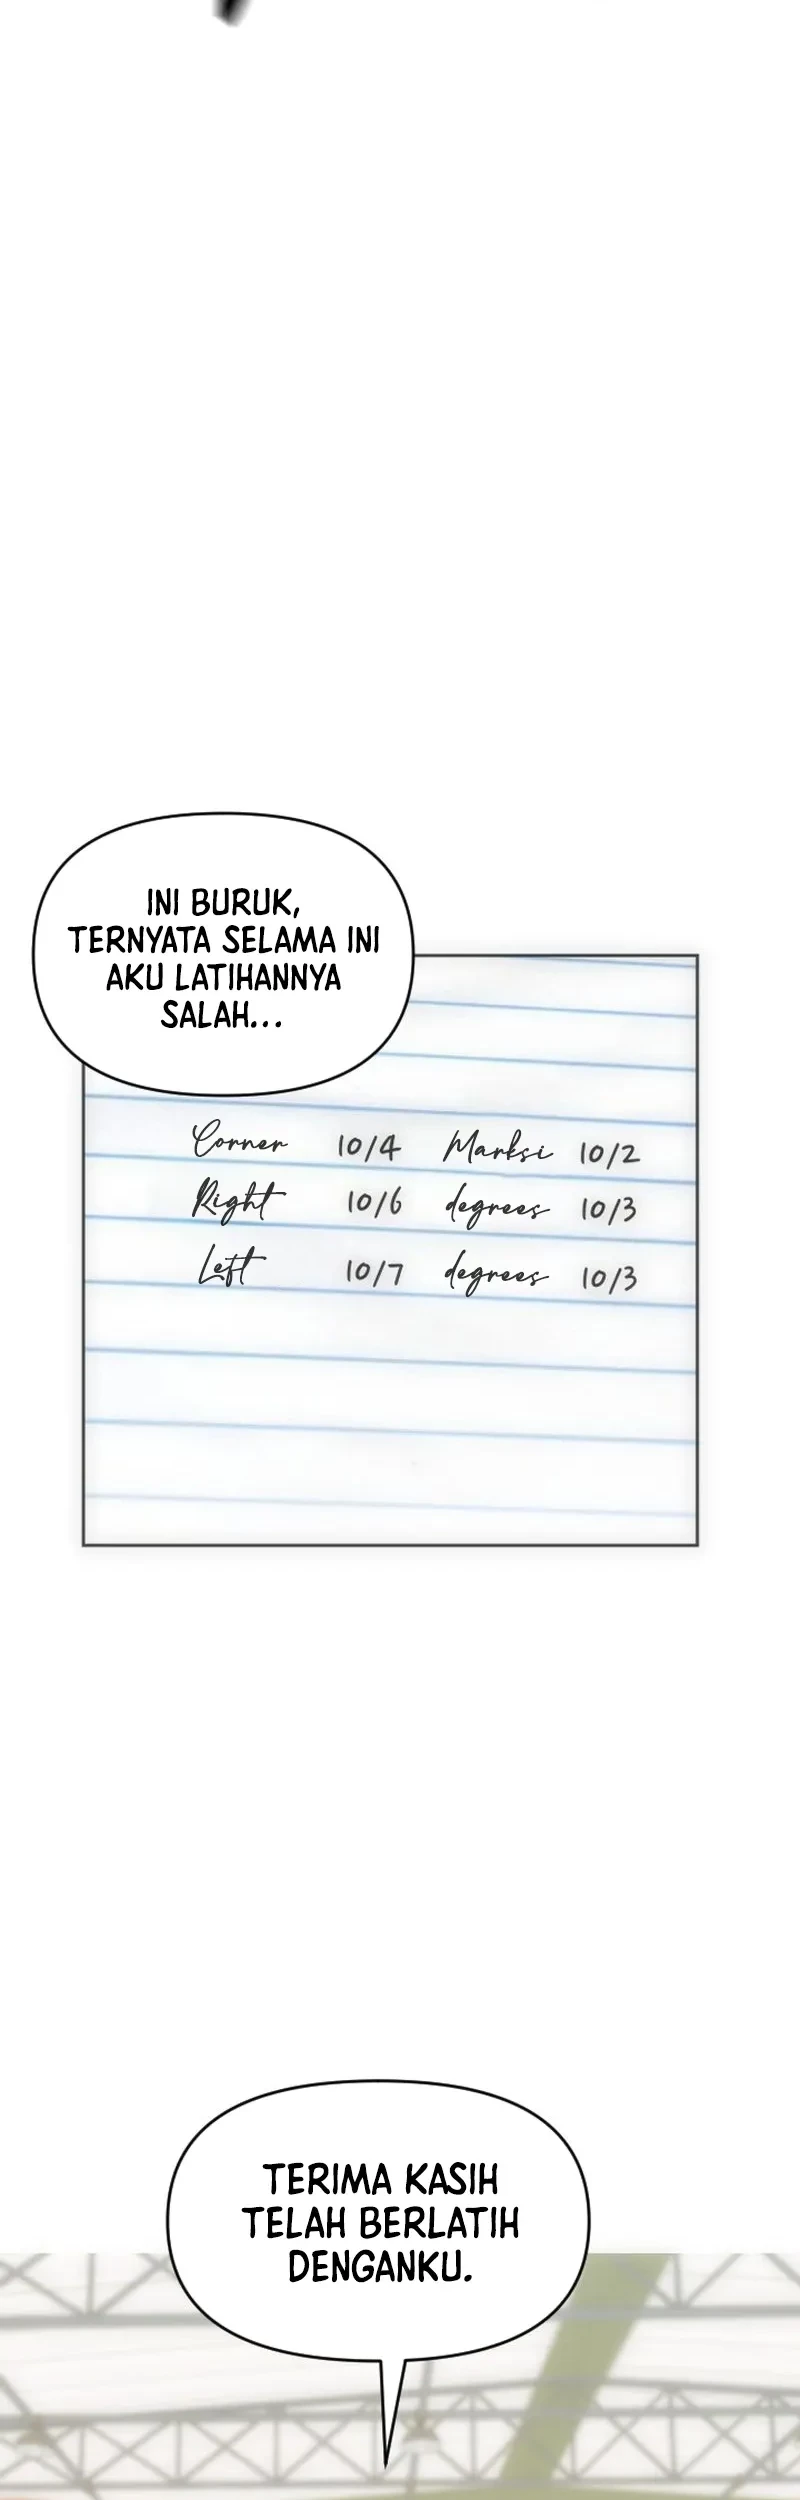 INI BURUK,
TERNYATA SELAMA INI
AKU LATIHANNYA
SALAH...
Corner 10/4 Marksi 10/2
Right 10/6 degrees 10/3
Left 10/7 degrees 10/3
TERIMA KASIH
TELAH BERLATIH
DENGANKU.